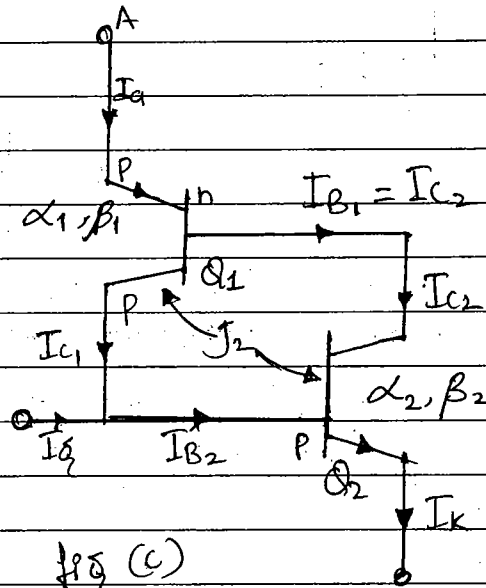 A
Ia
P
n
α1, β1
IB1 = IC2
Q1
P
IC1
J2
IC2
α2, β2
Ig
IB2
P
Q2
IK
fig (c)